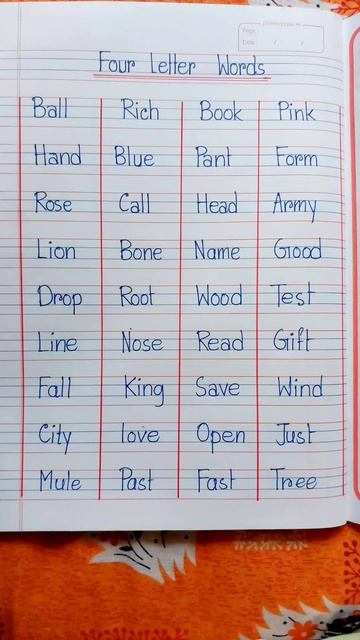 Page:
Date: / /
Four Letter Words
Ball Rich Book Pink
Hand Blue Pant Form
Rose Call Head Army
Lion Bone Name Good
Drop Root Wood Test
Line Nose Read Gift
Fall King Save Wind
City love Open Just
Mule Past Fast Tree